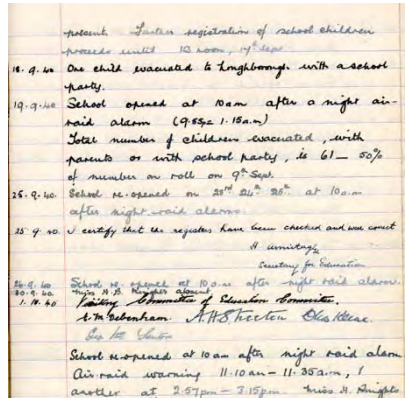 present. Further registration of school children
proceeds until 12 noon, 19th Sept.
18.9.40. One child evacuated to Loughborough with a school
party.
19.9.40 School opened at 10 am after a night air-
raid alarm (9.85pc 1.15 a.m)
Total number of children evacuated, with
parents or with school party, is 61 — 50%
of number on roll on 9th Sept.
25.9.40. School re-opened on 23rd 24th 25th at 10 a.m
after night raid alarms.
25.9.40. I certify that the registers have been checked and were correct
H. Armitage
Secretary for Education
26.9.40. School re-opened at 10 a.m after night raid alarm.
30.9.40. Miss H.B. Knights absent.
1.10.40 Visiting Committee of Education Committee.
E. M. Debenham. A.H. Streeton
School re-opened at 10 am after night raid alarm
Air-raid warning 11.10 am - 11.35 a.m,
another at 2.57pm - 3.15pm. Miss H. Knights